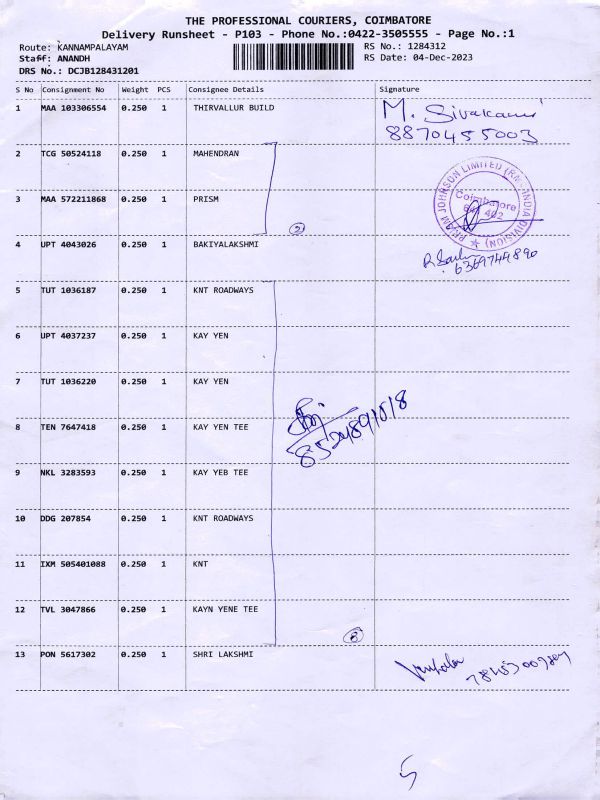 THE PROFESSIONAL COURIERS, COIMBATORE
Delivery Runsheet - P103 - Phone No.:0422-3505555 - Page No.:1
Route: KANNAMPALAYAM RS No.: 1284312
Staff: ANANDH RS Date: 04-Dec-2023
DRS No.: DCJB128431201
S No Consignment No Weight PCS Consignee Details Signature
1 MAA 103306554 0.250 1 THIRVALLUR BUILD M. Sivakami
8870455003
2 TCG 50524118 0.250 1 MAHENDRAN
3 MAA 572211868 0.250 1 PRISM
PRISM JOHNSON LIMITED (RMC INDIA DIVISION) ★
Coimbatore
641 402
2
4 UPT 4043026 0.250 1 BAKIYALAKSHMI
6369744890
5 TUT 1036187 0.250 1 KNT ROADWAYS
6 UPT 4037237 0.250 1 KAY YEN
7 TUT 1036220 0.250 1 KAY YEN
8 TEN 7647418 0.250 1 KAY YEN TEE
8524891018
9 NKL 3283593 0.250 1 KAY YEB TEE
10 DDG 207854 0.250 1 KNT ROADWAYS
11 IXM 505401088 0.250 1 KNT
12 TVL 3047866 0.250 1 KAYN YENE TEE
8
13 PON 5617302 0.250 1 SHRI LAKSHMI
5